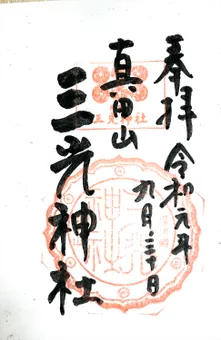 奉拝
令和元年
九月二十日
真田山
三光神社
三光神社